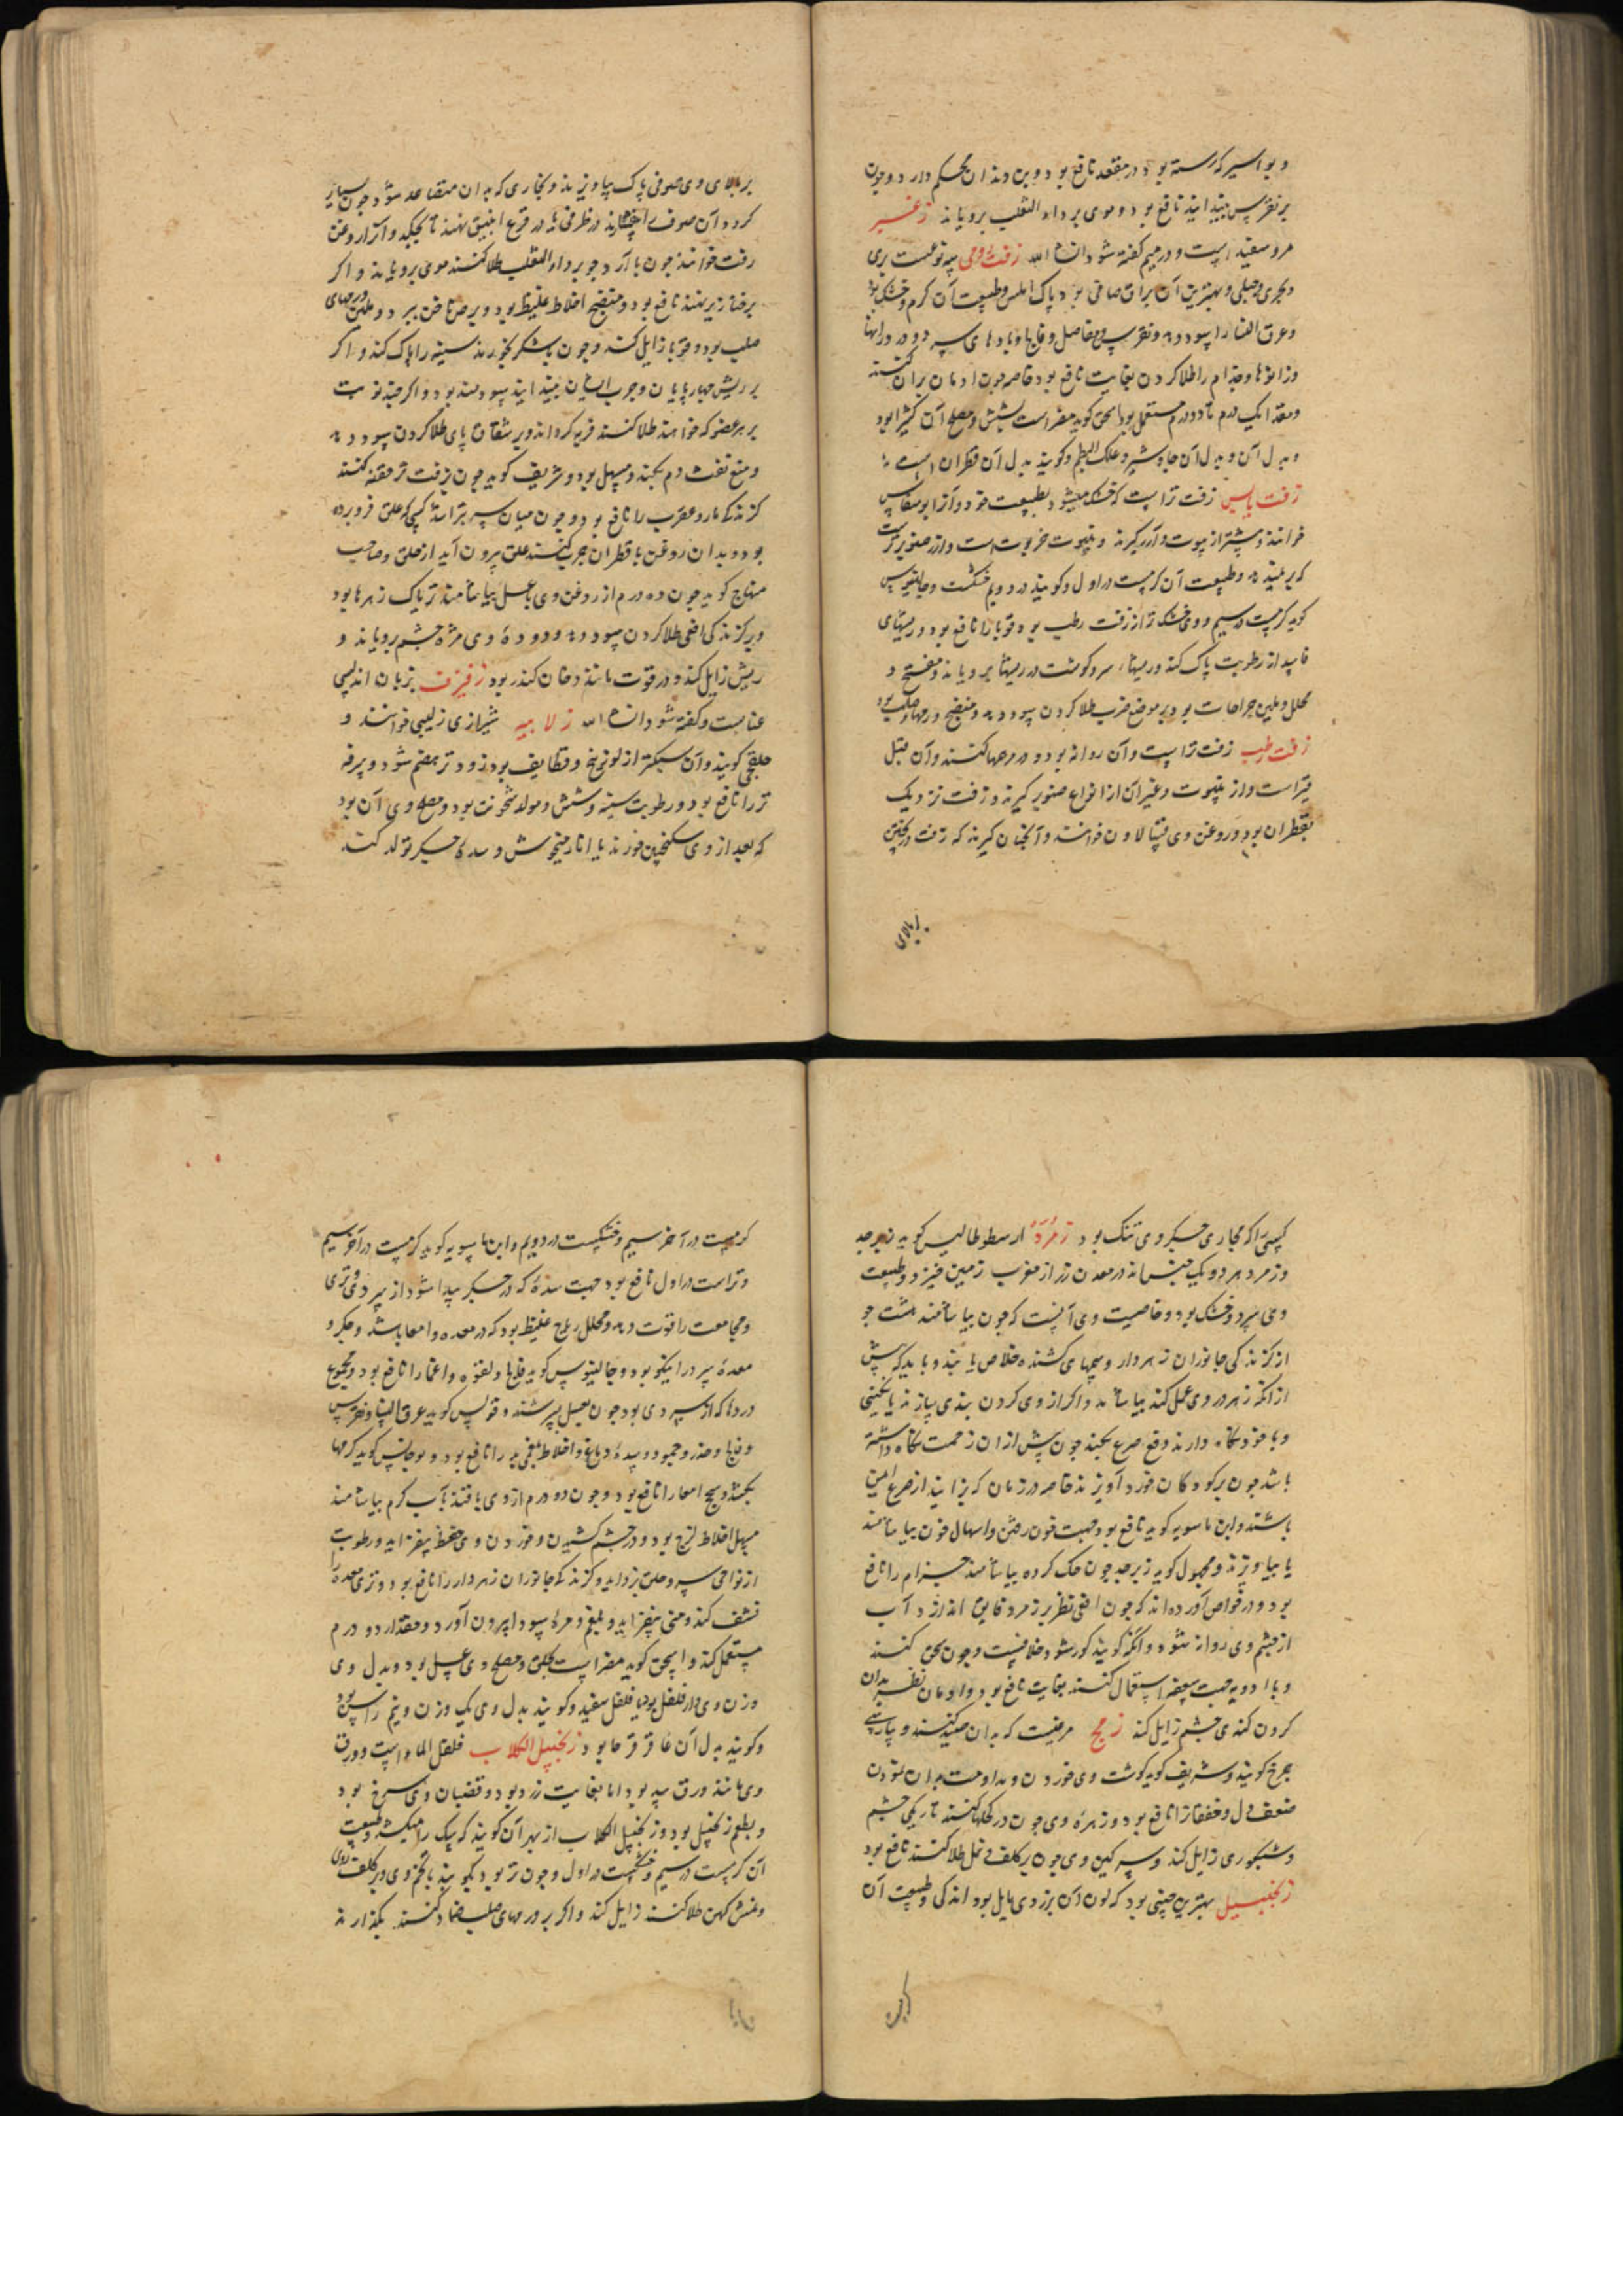 و بواسیر که رسته بود در مقعد نافع بود و بن دندان محکم دارد و چون
بر نقرس بندایند نافع بود و موی بر داء الثعلب برویاند زغبر
مرو سفید است و در میم گفته شود ان شاء الله زفت رومی سه نوعست بری
و بحری و جبلی و بهترین آن براق صافی بود پاک املس و طبیعت آن گرم و خشک بود
و عرق النسا را سود دهد و نقرس و مفاصل و فالج و بادهای سرد و درد رانها
و زانوها و جذام را طلا کردن بغایت نافع بود خاصه چون ادمان بر آن کنند
و مقدار یک درم تا دو درم مستعمل بود اسحق گوید مضر است بشش و مصلح آن کثیرا بود
و بدل آن و بدل آن جاوشیر و علک البطم و گویند بدل آن قطران است
زفت یابس زفت تر است که خشک میشود بطبیعت خود و آنرا بوسقاس
خوانند و بیشتر از نبوت و آرز گیرند و نبوت خربوت است و ارز صنوبر است
که بر نیند و طبیعت آن گرمست در اول و گویند در دویم خشکست و جالینوس
گوید گرمست در سیم و وی خشک تر از زفت رطب بود قوبا را نافع بود و ریشهای
فاسد از رطوبت پاک کند و ریشها و گوشت در ریشها برویاند و مفتح و
محلل و ملین جراحات بود بر موضع ضرب طلا کردن سود دهد و منضج ورمهاء صلب بود
زفت رطب زفت تر است و آن روانه بود و در مرهمها کنند و آن قبل
قیر است و از نبوت و غیر آن از انواع صنوبر گیرند و زفت نزدیک
بقطران بود و روغن وی فیسالاون خوانند و آنچنان گیرند که زفت در پختن
بر بالای
بر بالای وی صوفی پاک بیاویزند و بخاری که بدان متصاعد شود چون بسیار
گردد آن صوف را بیفشارند در ظرفی یا در قرع انبیق نهند تا بچکد و آنرا روغن
زفت خوانند چون با آرد جو بر داء الثعلب طلا کنند موی برویاند و اگر
بر خنازیر نهند نافع بود و منضج اخلاط غلیظ بود و برص ناخن ببرد و ملین ورمهای
صلب بود و قوبا زایل کند و چون با شکر بخورند سینه را پاک کند و اگر
بر ریش چهارپایان و جرب ایشان بندایند سودمند بود و اگر چند نوبت
بر هر عضو که خواهند طلا کنند فربه گرداند و بر شقاق پای طلا کردن سود دهد
و منع نفث دم بکند و مسهل بود و شریف گوید چون بزفت تر حقنه کنند
گزندگی مار و عقرب را نافع بود و چون میان سر بتراشند کسی که علق فرو برده
بود و بدان روغن با قطران چرب کنند علق بیرون آید از حلق و صاحب
منهاج گوید چون ده درم از روغن وی با عسل بیاشامند تریاک زهرها بود
و بر گزندگی افعی طلا کردن سود دهد و دوده وی مژه چشم برویاند و
ریش زایل کند و در قوت مانند دخان کندر بود زفیزف بزبان اندلسی
عنابست و گفته شود ان شاء الله زلابیه شیرازی زلیبی خوانند و
حلقچی گویند و آن سبکتر از لوزینج و قطایف بود زود تر هضم شود و سرفه
تر را نافع بود و رطوبت سینه و شش و مولد سخونت بود و مصلح وی آن بود
که بعد از وی سکنجبین خورند یا انار میخوش و سده جگر تولد کند
کسی را که مجاری جگر وی تنک بود زمرد ارسطوطالیس گوید زبرجد
و زمرد هر دو یک جنس اند در معدن زر از مغرب زمین خیزد و طبیعت
وی سرد و خشک بود و خاصیت وی آنست که چون بیاشامند هشت جو
از گزندگی جانوران زهردار و سمهای کشنده خلاص یابند و باید که پیش
از آنکه زهر در وی عمل کند بیاشامد و اگر از وی گردن بندی سازند یا نگینی
و با خود نگاه دارند دفع صرع بکند چون پیش از آن زحمت نگاه داشته
باشد چون بر کودکان خورد آویزند خاصه در زمان که بزایند از صرع ایمن
باشند و ابن ماسویه گوید نافع بود جهت خون رفتن و اسهال خون بیاشامند
یا بیاویزند و مجهول گوید زبرجد چون حک کرده بیاشامند جذام را نافع
بود و در خواص آورده اند که چون افعی نظر بر زمرد فایق اندازد آب
از چشم وی روانه شود و آنکه گویند کور شود خلافیست و چون سحق کنند
و با ادویه جهت سعفه استعمال کنند بغایت نافع بود و ادمان نظر بدان
کردن کندی چشم زایل کند زمج مرغیست که بدان صید کنند و بپارسی
چرغ گویند و شریف گوید گوشت وی خوردن و مداومت بران نمودن
ضعف دل و خفقان را نافع بود و زهره وی چون در کحلها کنند تاریکی چشم
و شبکوری زایل کند و سرگین وی چون بر کلف و نمش طلا کنند نافع بود
زنجبیل بهترین چینی بود که لون آن بزردی مایل بود اندکی و طبیعت آن
گرمست
گرمست در آخر سیم و خشکست در دویم و ابن ماسویه گوید گرمست در آخر سیم
و تر است در اول نافع بود جهت سده که در جگر پیدا شود از سردی و تری
و مجامعت را قوت دهد و محلل ریاح غلیظ بود که در معده و امعا باشد و جگر و
معده سرد را نیکو بود و جالینوس گوید فالج و لقوه و اغما را نافع بود و مجموع
دردها که از سردی بود چون بعسل بسرشند و قولس گوید عرق النسا و نقرس
و فالج و خدر و جمود و سده دماغ و اخلاط بلغمی بد را نافع بود و یوحانس گوید کرمها
بکشد و سحج امعا را نافع بود و چون دو درم از وی با قند بآب گرم بیاشامند
مسهل اخلاط لزج بود و در چشم کشیدن و خوردن وی حفظ بیفزاید و رطوبت
از نواحی سر و حلق بزداید و گزندگی جانوران زهردار را نافع بود و تری معده را
نشف کند و منی بیفزاید و بلغم و مره سودا بیرون آورد و مقدار دو درم
مستعمل کند و اسحق گوید مضر است بحلق و مصلح وی عسل بود و بدل وی
وزن وی دار فلفل بود یا فلفل سفید و گویند بدل وی یک وزن و نیم راسن بود
و گویند بدل آن عاقرقرحا بود زنجبیل الکلاب فلفل الماء است و ورق
وی مانند ورق بید بود اما بغایت زرد بود و قضبان وی سرخ بود
و بطعم زنجبیل بود و زنجبیل الکلاب از بهر آن گویند که سگ را میکشد و طبیعت
آن گرمست در سیم و خشکست در اول و چون تر بود بکوبند با تخم وی و بر کلف روی
و نمش کهن طلا کنند زایل کند و اگر بر ورمهای صلب ضماد کنند بگدازند